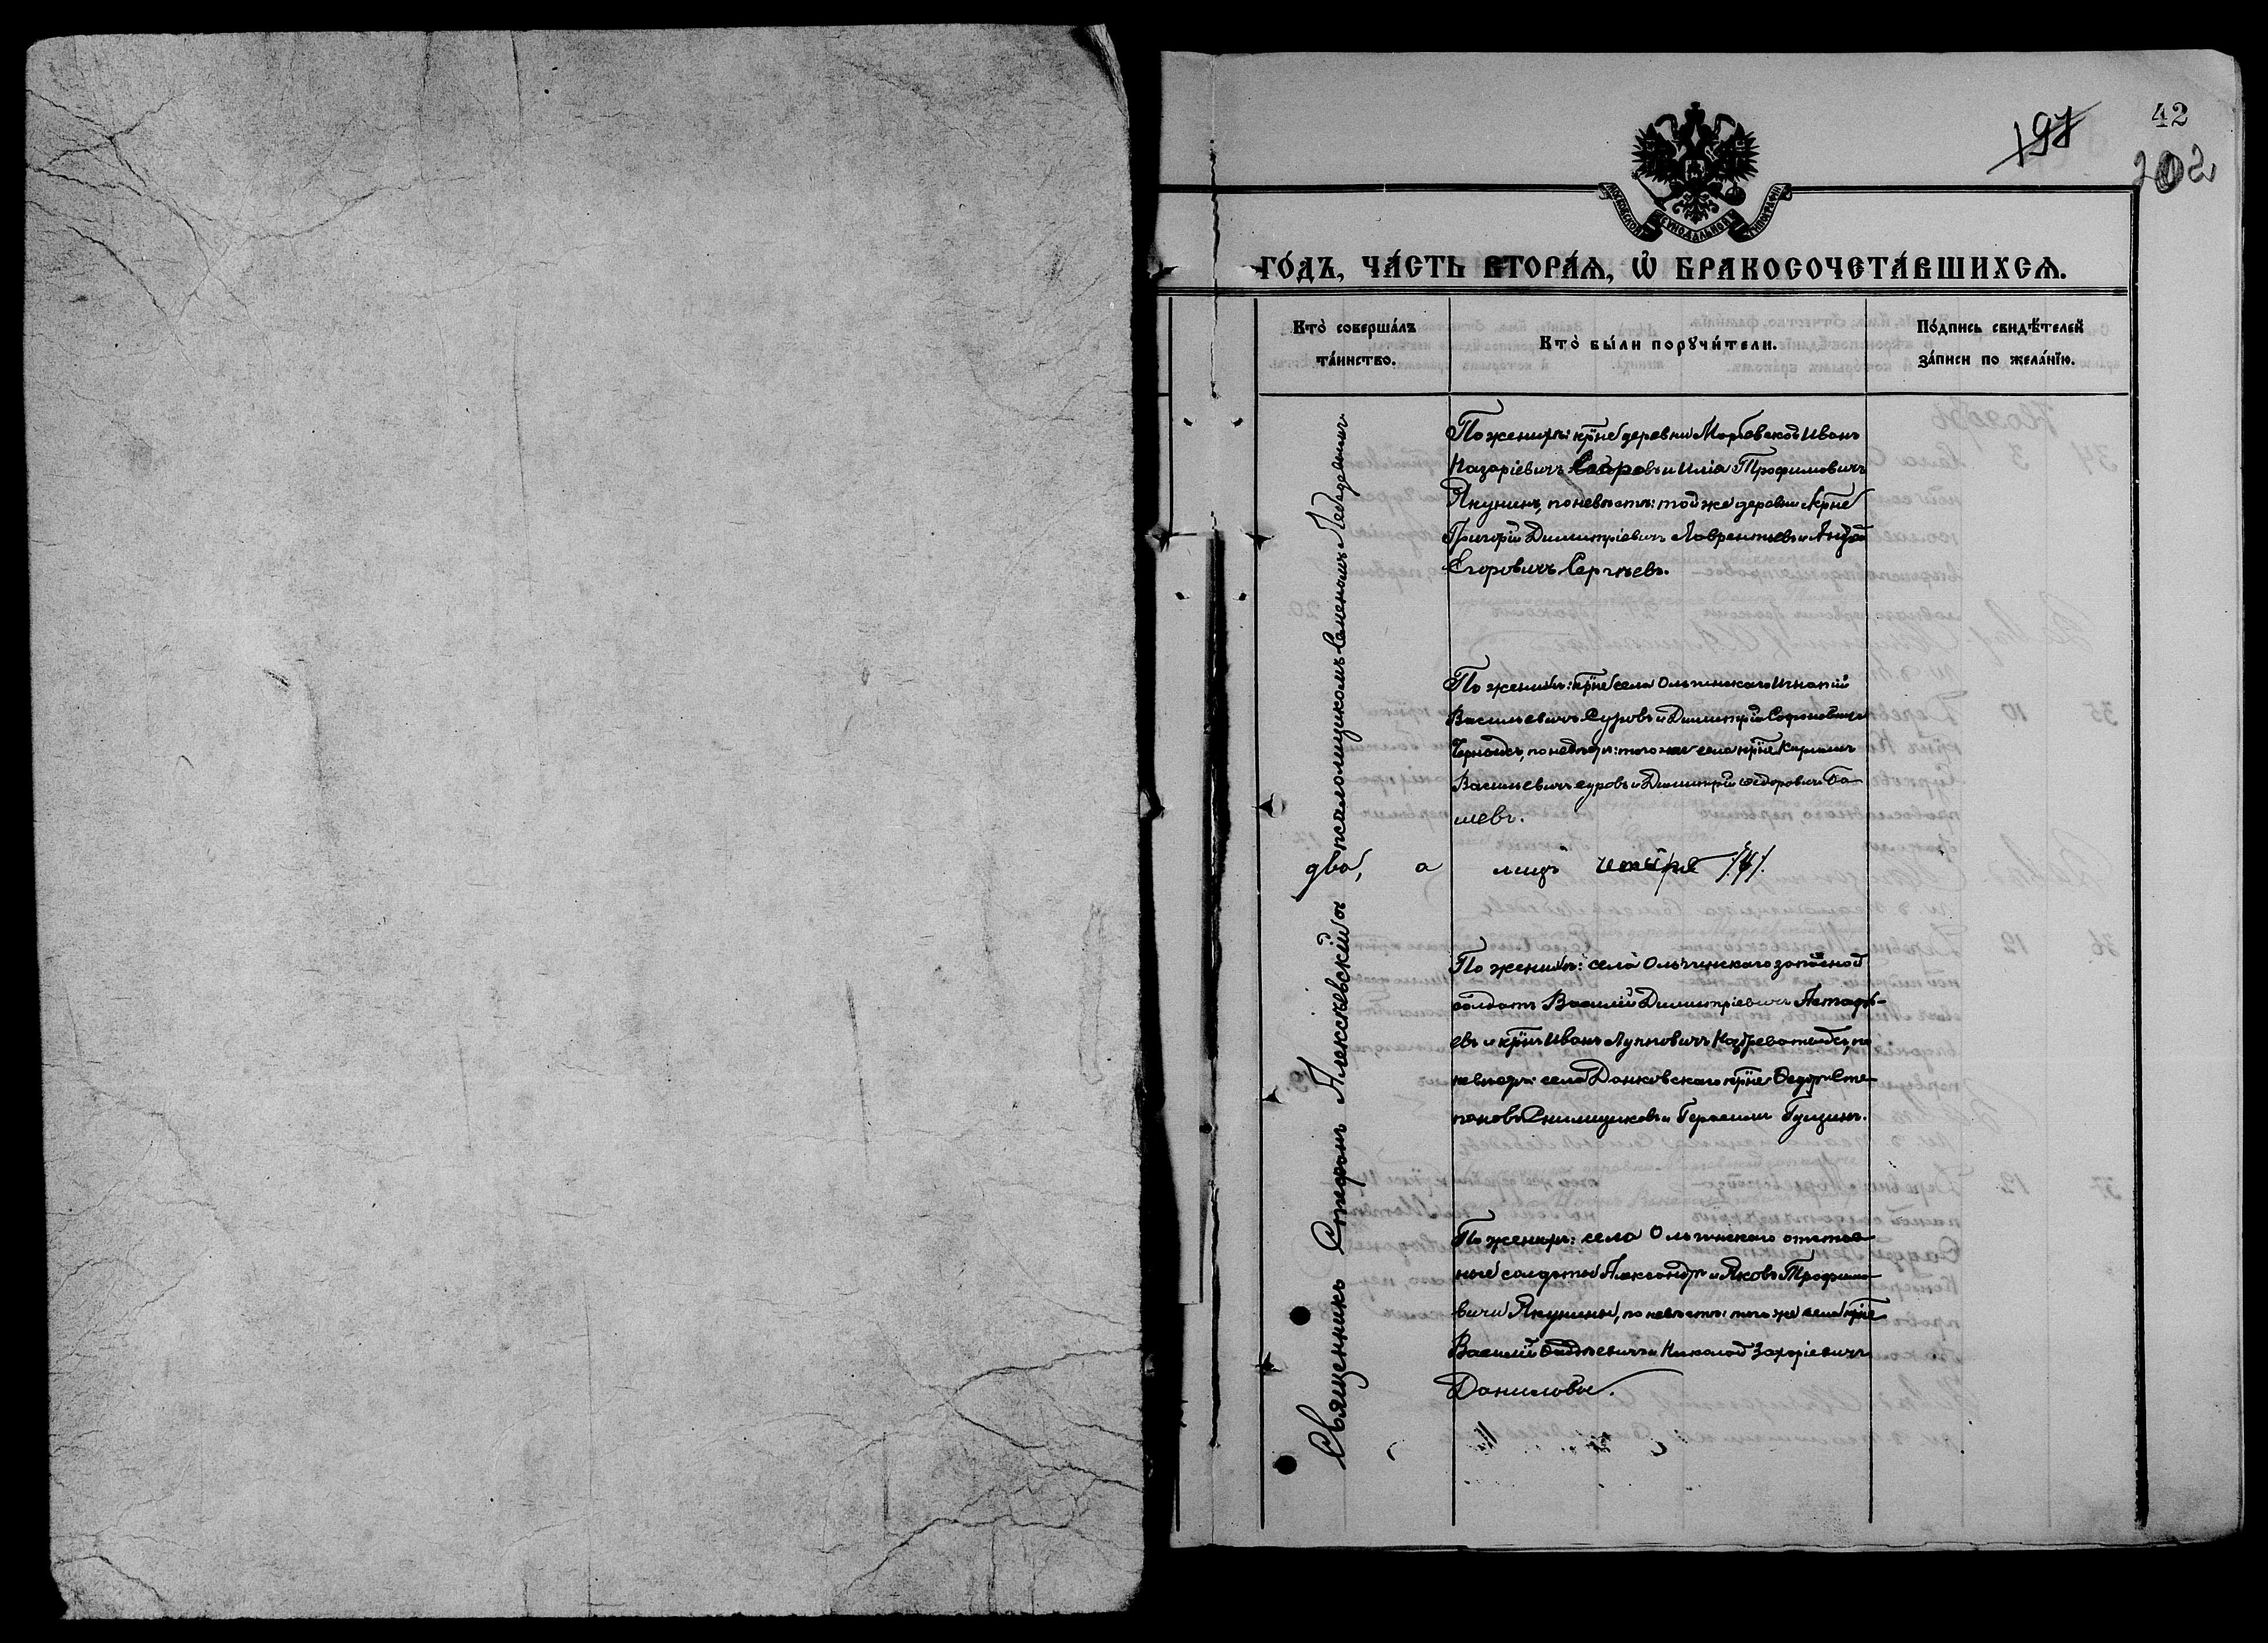 42
197
202
МОСКОВСКОЙ СѴНОДАЛЬНОЙ ТИПОГРАФІИ
ГО́ДЪ, ЧА́СТЬ ВТОРА́Ѧ, Ѡ҆ БРАКОСОЧЕТА́ВШИХСѦ.
Кто̀ соверша́лъ
та́инство.
Кто̀ бы́ли порꙋчи́тели.
По́дпись свидѣ́телей
за́писи по жела́нїю.
Священникъ Стефанъ Алексѣевскій съ псаломщикомъ Семеномъ Лебедевымъ
По женихѣ: кр̃не деревни Марьевской Иванъ
Назаріевичъ и Илія Трофимовичъ
Якунинъ, по невѣстѣ: той же деревни кр̃не
Григорій Димитріевичъ Лаврентьевъ и Андрей
Егоровичъ Сергѣевъ.
По женихѣ: кр̃не села Ольгинскаго Игнатій
Васильевичъ Суровъ и Димитрій Софоновичъ
по невѣстѣ: того же села кр̃не
Васильевичъ Суровъ и Димитрій Ѳедоровичъ Ба-
шевъ.
два, а лицъ четыре /4/.
По женихѣ: села Ольгинскаго запасной
солдатъ Василій Димитріевичъ Астафь-
евъ и кр̃нъ Иванъ по
невѣстѣ: села Донковскаго кр̃не Ѳедоръ Сте-
пановъ и Герасимъ Гущинъ.
По женихѣ: села Ольгинскаго отстав-
ные солдаты Александръ и Яковъ Трофимо-
вичи Якунины, по невѣстѣ: того же села кр̃не
Василій Ѳаддѣевичъ и Николай Захаріевичъ
Даниловы.